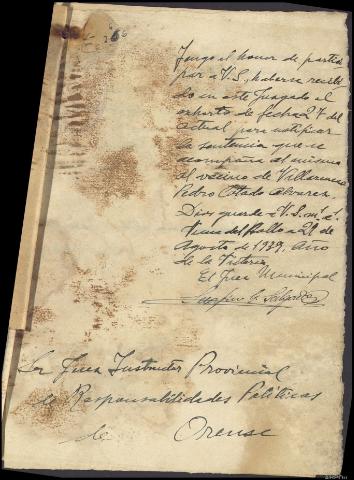 Tengo el honor de partici
par a V.S., haberse recibi
do en este Juzgado el
exhorto de fecha 27 del
actual para notificar
la sentencia que se
acompaña al mismo
al vecino de
Pedro Cotado Alvarez.
Dios guarde a V.S. m. a.
Viana del Bollo a 29 de
Agosto de 1939, Año
de la Victoria.
El Juez Municipal
Ser Juez Instructor Provincial
de Responsabilidades Políticas
de Orense